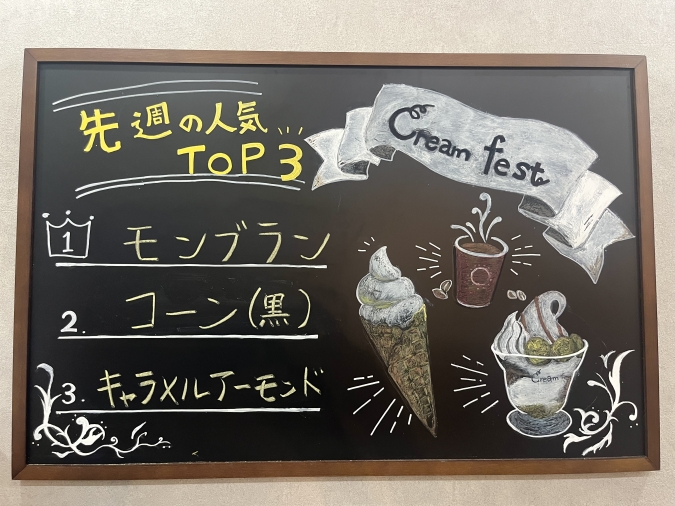 先週の人気
TOP 3
Cream fest
1 モンブラン
2. コーン(黒)
3. キャラメルアーモンド
Cream